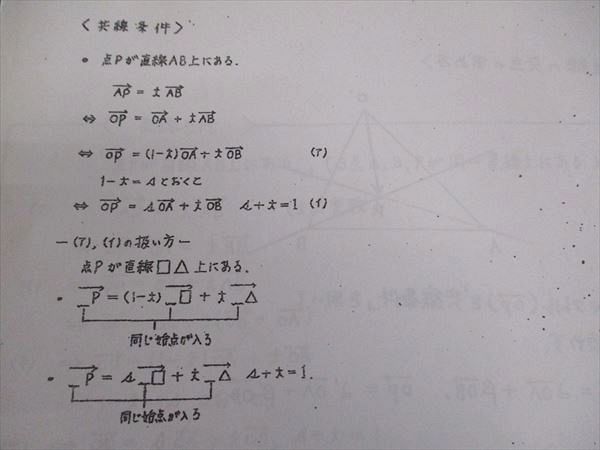 〈共線条件〉
• 点Pが直線AB上にある.
AP = t AB
⇔ OP = OA + t AB
⇔ OP = (1-t) OA + t OB (ア)
1-t = s とおくと
⇔ OP = s OA + t OB s+t=1 (イ)
—(ア), (イ)の扱い方—
点Pが直線□△上にある.
• _P = (1-t) _□ + t _△
同じ始点が入る
• _P = s _□ + t _△ s+t=1.
同じ始点が入る